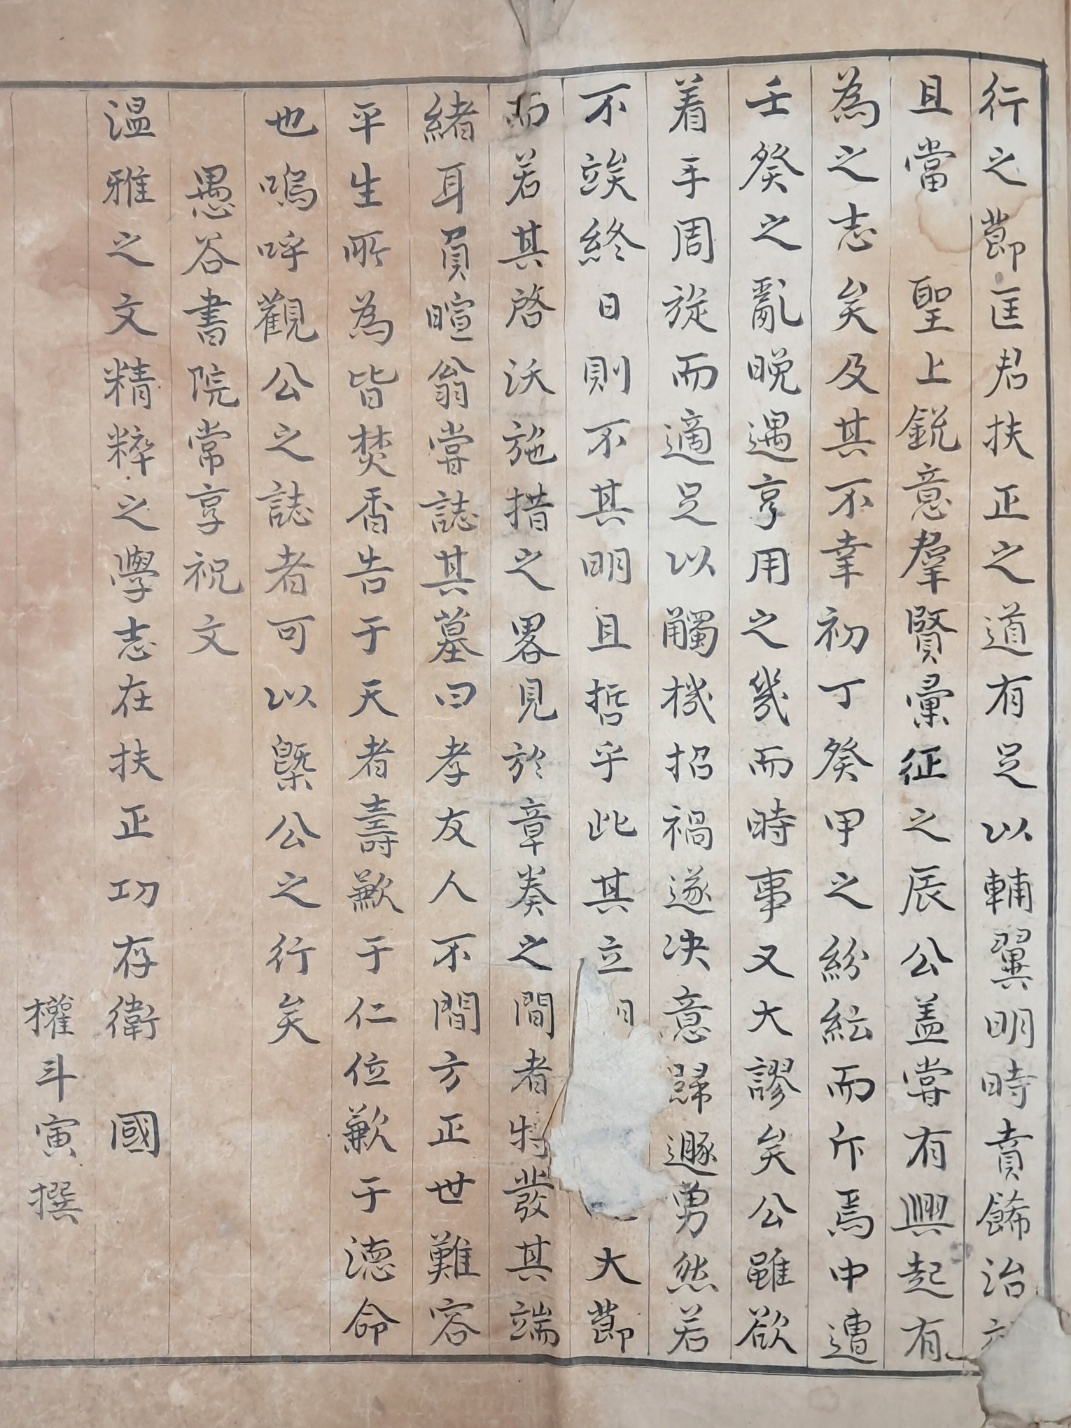 行之節匡君扶正之道有足以輔翼明時賁餙治
且當　聖上銳意羣賢彙征之辰公盖甞有興起有
為之志矣及其不幸初丁癸甲之紛紜而斥焉中遭
壬癸之亂晚遇亨用之幾而時事又大謬矣公雖欲
着手周旋而適足以觸機招禍遂决意歸遯勇然若
不竢終日則不其明且哲乎此其立朝大節
而若其啓沃施措之畧見於章奏之間者特發其端
緒耳負暄翁甞誌其墓曰孝友人不間方正世難容
平生所為皆焚香告于天者壽歉于仁位歉于德命
也嗚呼觀公之誌者可以槩公之行矣
愚谷書院常享祝文
溫雅之文精粹之學志在扶正功存衛　國
權斗寅撰